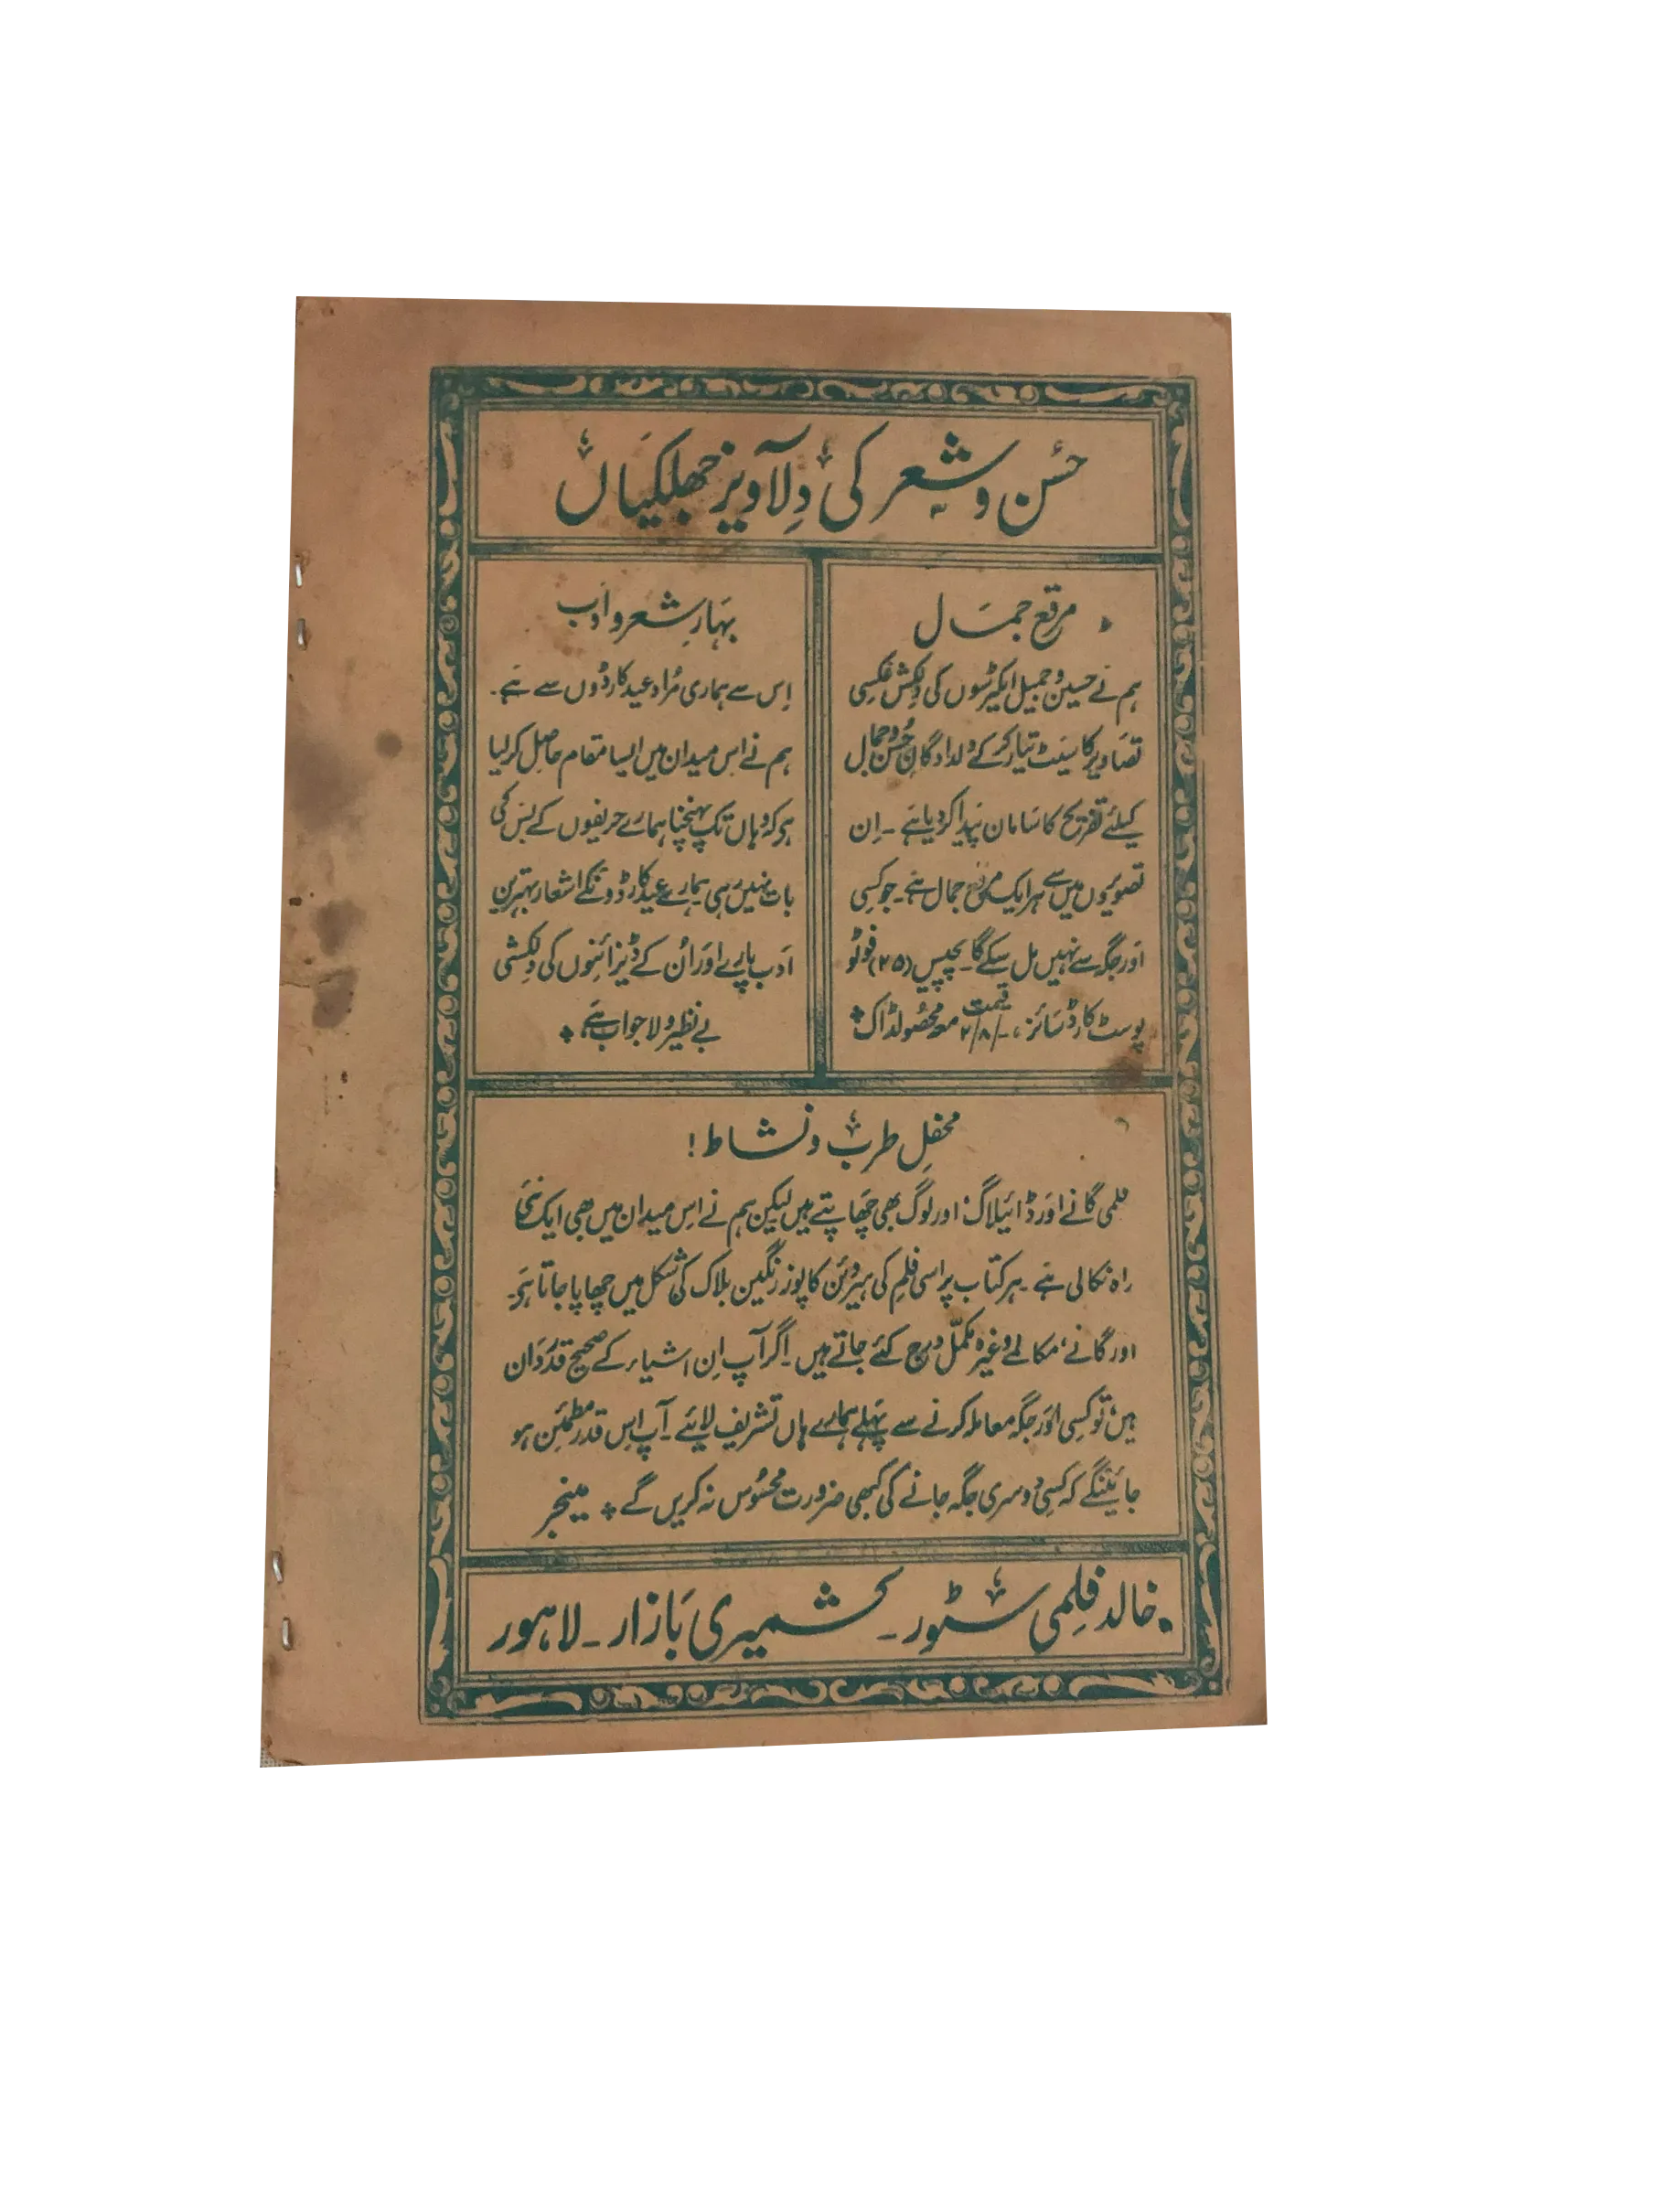 حُسن و شعر کی دِلآویز جھلکیاں
مرقع جمال
ہم نے حسین و جمیل ایکٹرسوں کی دِلکش عکسی
تصاویر کا سیٹ تیار کر کے دلدادگانِ حُسن و جمال
کیلئے تفریح کا سامان پیدا کر دیا ہے ۔ اِن
تصویروں میں سے ہر ایک مرقع جمال ہے ۔ جو کسِی
اور جگہ سے نہیں مل سکے گا ۔ پچیس (۲۵) فوٹو
پوسٹ کارڈ سائز ، قیمت -/۲/۸ معہ محصُولڈاک
بہارِ شعر و ادَب
اِس سے ہماری مُراد عید کارڈوں سے ہے ۔
ہم نے اس میدان میں ایسا مقام حاصل کر لیا
ہر کہ وہاں تک پہنچنا ہمارے حریفوں کے بس کی
بات نہیں رہی ہمارے عید کارڈونکے اشعار بہترین
ادَب پارے اور اُن کے ڈیزائنوں کی دِلکشی
بے نظیر و لاجواب ہے
محفلِ طرب و نشاط !
فلمی گانے اور ڈائیلاگ، اور لوگ بھی چھاپتے ہیں لیکن ہم نے اِس میدان میں بھی ایک نئی
راہ نکالی ہے ۔ ہر کتاب پر اسی فلم کی ہیروئن کا پوز رنگین بلاک کی شکل میں چھاپا جاتا ہَو۔
اور گانے، مکالمے وغیرہ مکمّل درج کئے جاتے ہیں ۔ اگر آپ اِن اشیاء کے صحیح قدردَان
ہیں، تو کسی اور جگہ معاملہ کرنے سے پہلے ہمارے ہاں تشریف لایئے ۔ آپ اِس قدر مطمئِن ہو
جائینگے کہ کسی دوسری جگہ جانے کی کبھی ضرورت محسُوس نہ کریں گے مینجر
خالد فلِمی سٹور ۔ کشمیری بازار ۔ لاہور